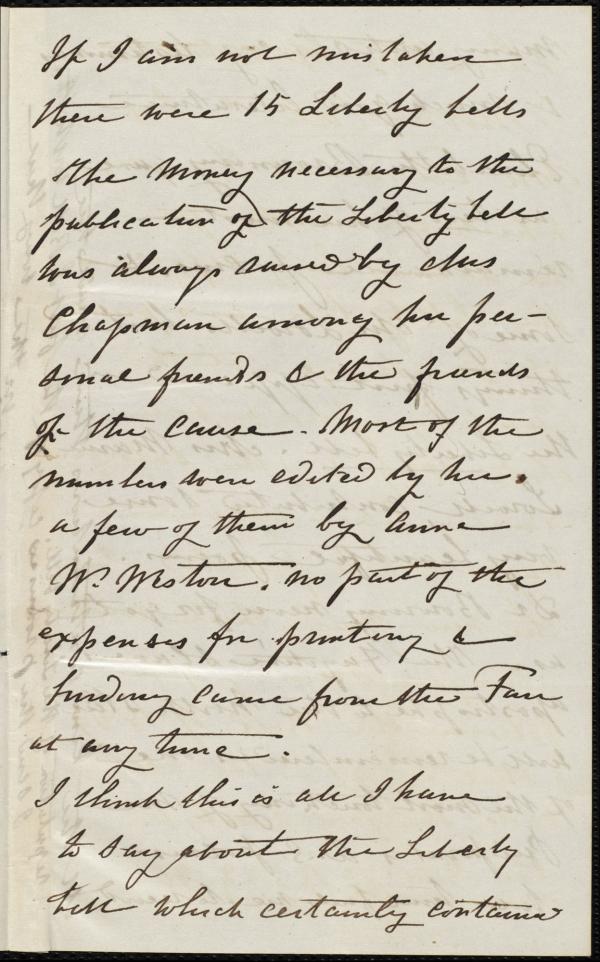 If I am not mistaken
there were 15 Liberty bells
The Money necessary to the
publication of the Liberty bell
was always raised by Mrs
Chapman among her per-
sonal friends & the friends
of the cause. Most of the
numbers were edited by her.
a few of them by Anne
W. Weston. no part of the
expenses for printing &
binding came from the Fair
at any time.
I think this is all I have
to say about the Liberty
bell which certainly contained